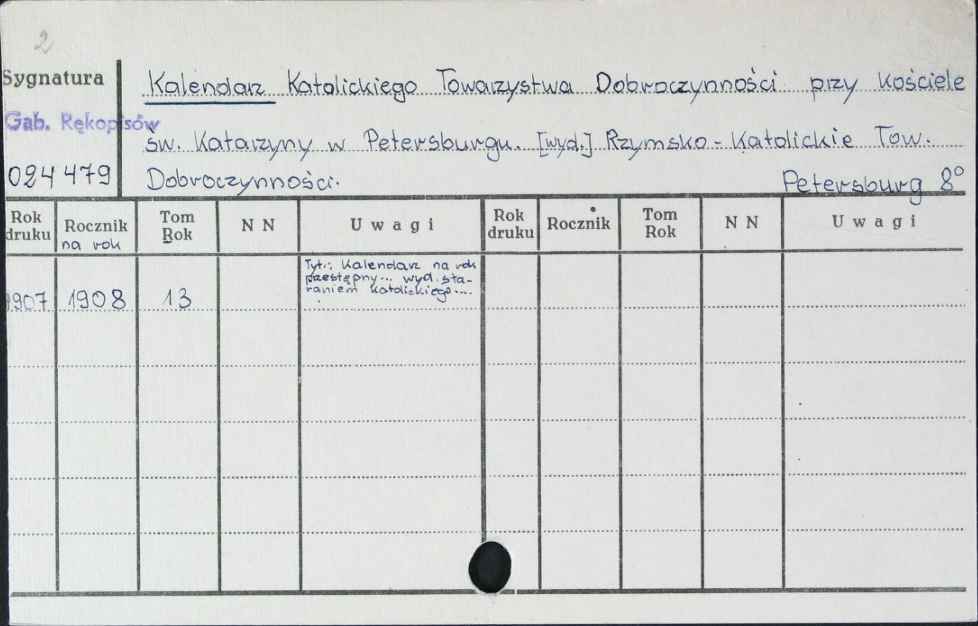 2
Sygnatura
Kalendarz Katolickiego Towarzystwa Dobroczynności przy kościele
Gab. Rękopisów
św. Katarzyny w Petersburgu. [wyd.] Rzymsko-Katolickie Tow.
024479
Dobroczynności.
Petersburg 8°
Rok druku
Rocznik na rok
Tom Rok
N N
Uwagi
Rok druku
Rocznik
Tom Rok
N N
Uwagi
1907
1908
13
Tyt.: Kalendarz na rok
przestępny... wyd. sta-
raniem Katolickiego....